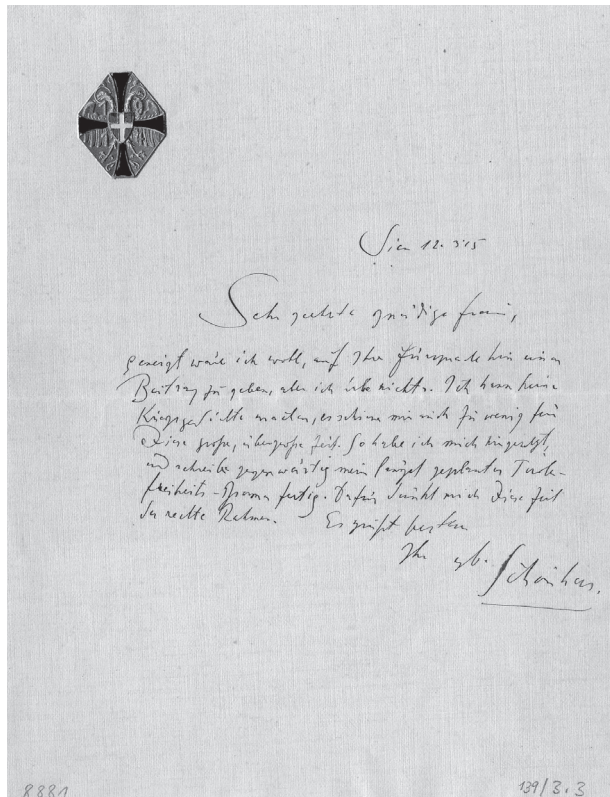 Wien 12. 3. 15
Sehr geehrte gnädige Frau,
geneigt wäre ich wohl, auf Ihre Fürsprache hin einen
Beitrag zu geben, aber ich habe nichts. Ich kann keine
Kriegsgedichte machen, es schiene mir auch zu wenig für
diese große, übergroße Zeit. So habe ich mich hingesetzt,
und schreibe gegenwärtig mein längst geplantes Tiroler-
freiheits-Drama fertig. Dafür dünkt mich diese Zeit
der rechte Rahmen.
Es grüßt bestens
Ihr erg. Schönherr.
8881
139/3.3